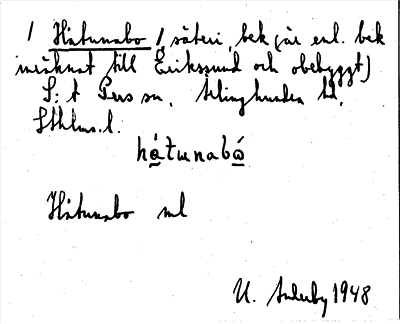 1 Håtunabo 1 säteri, bek får enl. bek
inräknat till Erikssund och obebyggt)
S:t Pers sn, Erlinghundra hd,
Sthlms. l.
håtunabo
Håtunabo ml
U. 1948